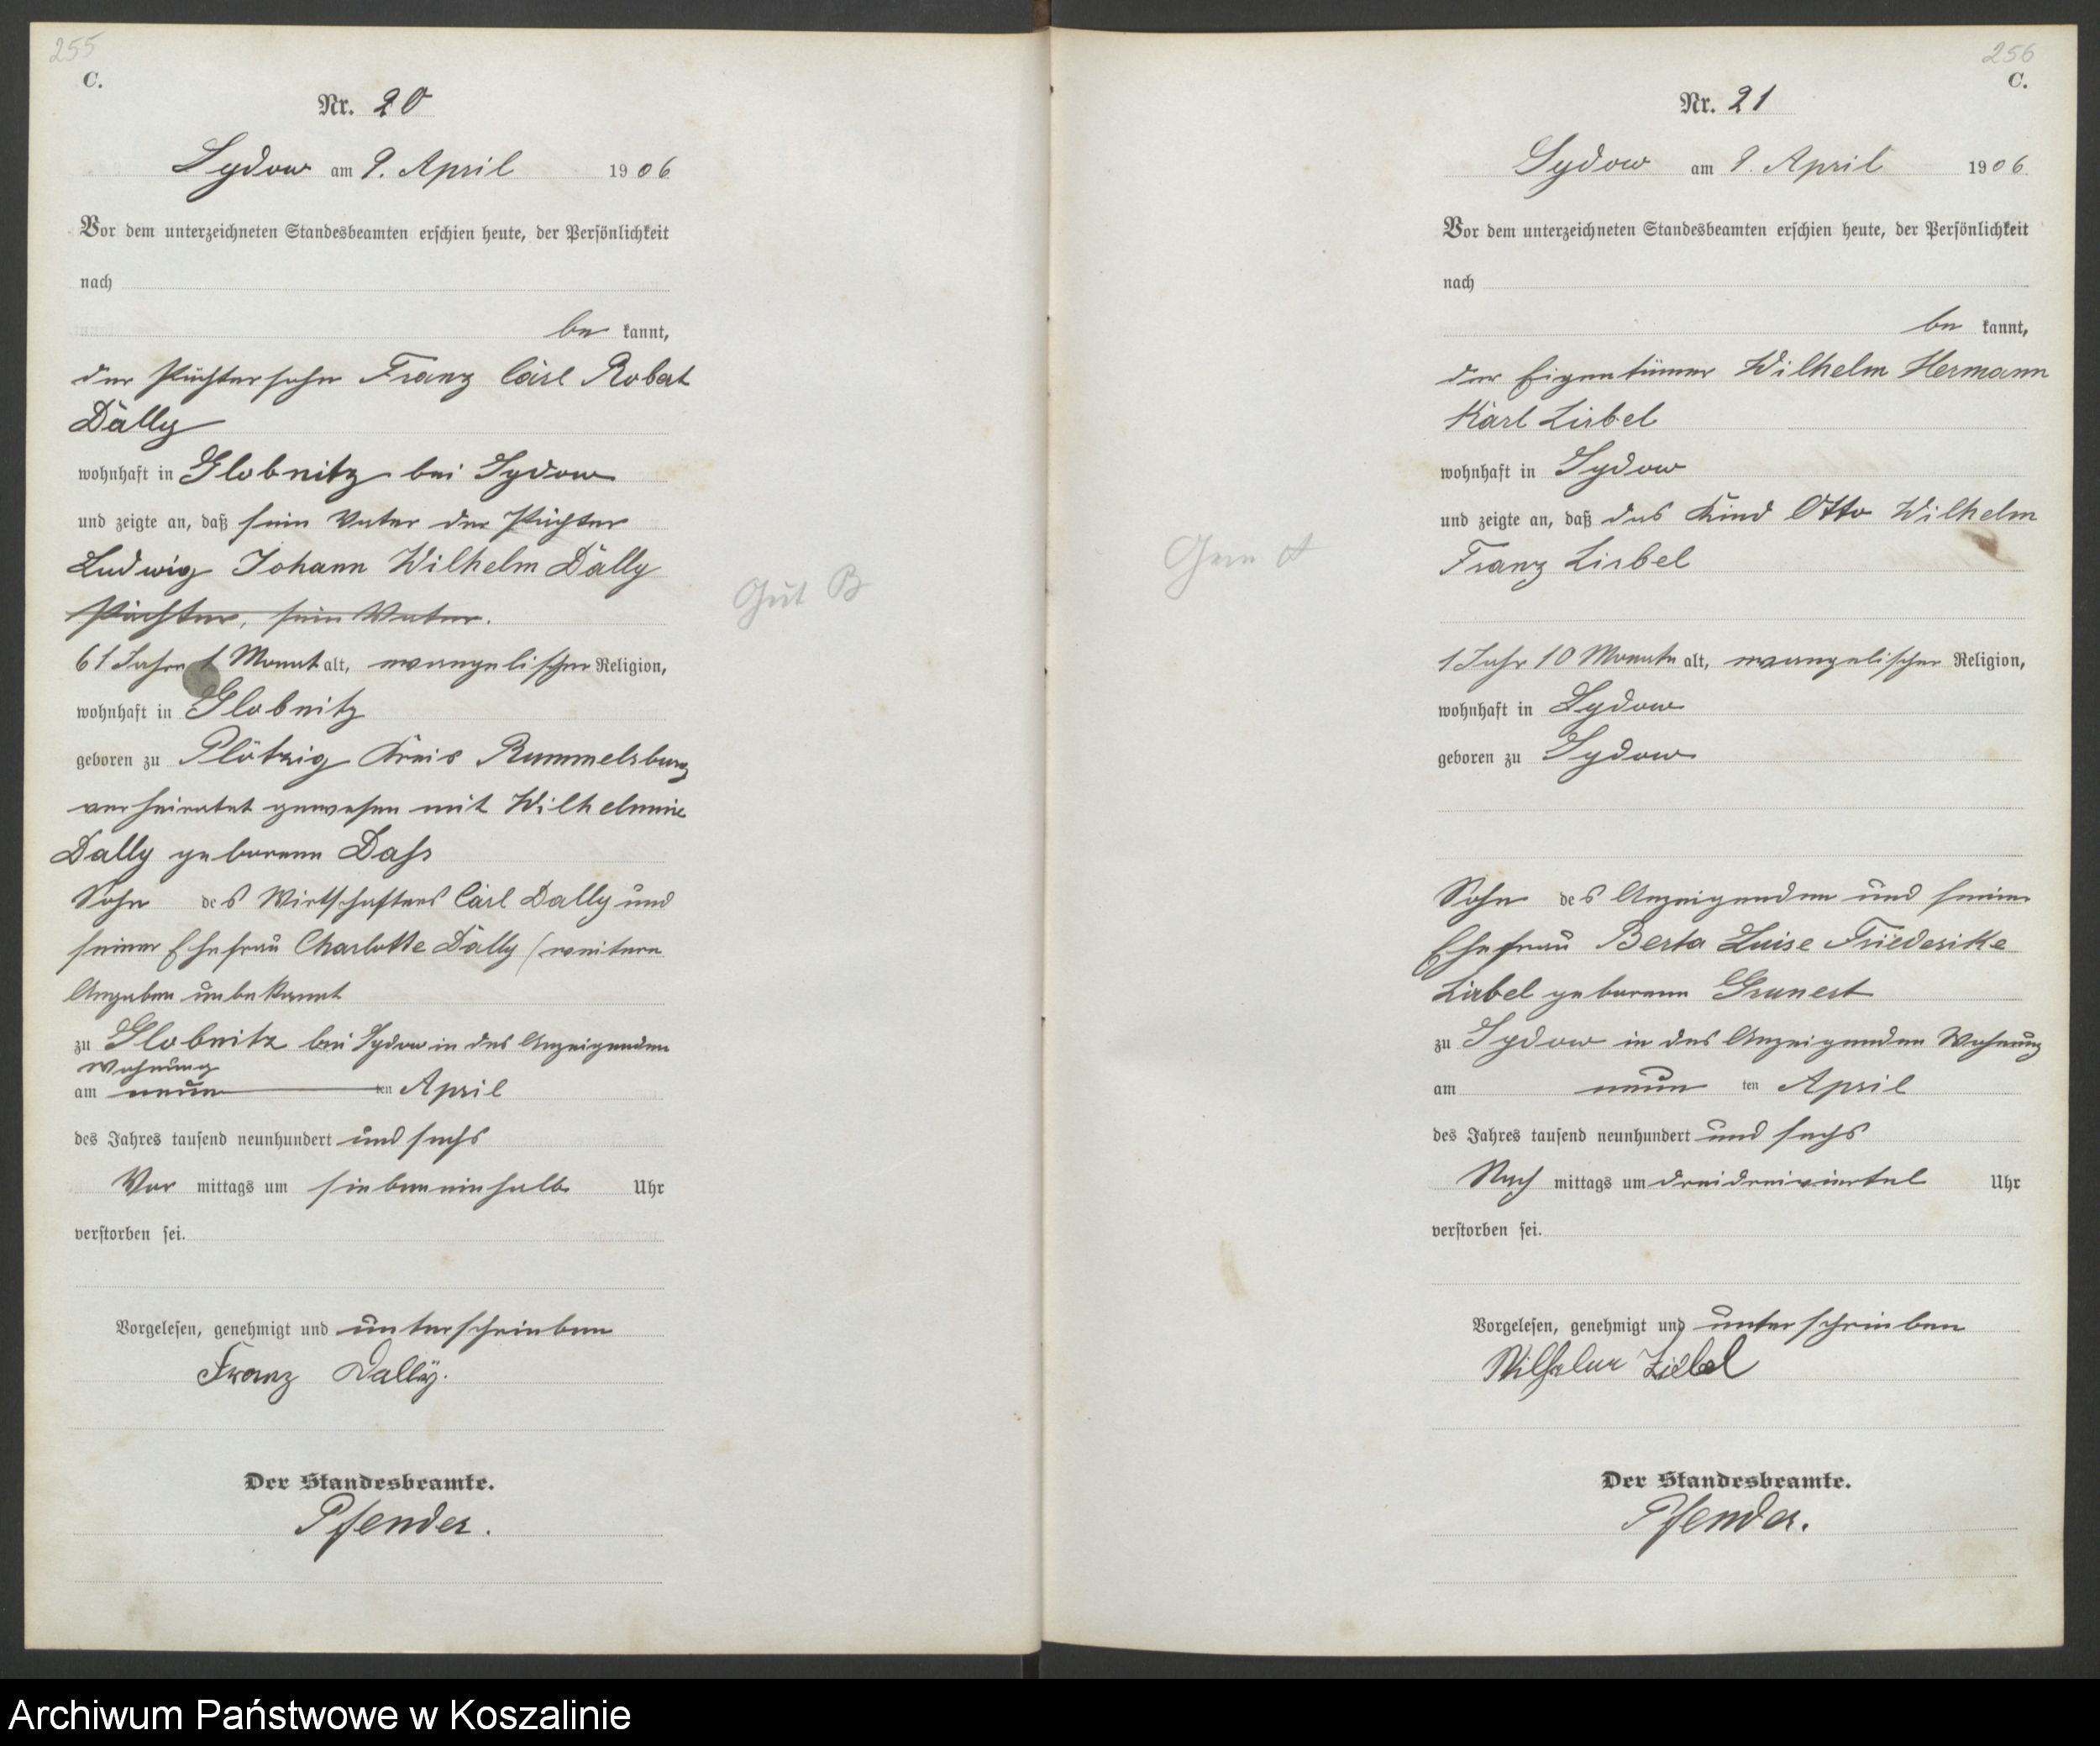 255
C.
Nr. 20
Sydow am 9. April 1906
Vor dem unterzeichneten Standesbeamten erschien heute, der Persönlichkeit
nach
be kannt,
der Pächtersohn Franz Carl Robert
Dally
wohnhaft in Globnitz bei Sydow
und zeigte an, daß sein Vater der Pächter
Ludwig Johann Wilhelm Dally
Pächter, sein Vater.
61 Jahre 1 Monat alt, evangelischer Religion,
wohnhaft in Globnitz
geboren zu Plötzig Kreis Rummelsburg
verheiratet gewesen mit Wilhelmine
Dally geborene Dass
Sohn des Wirtschafters Carl Dally und
seiner Ehefrau Charlotte Dally (weitere
Angaben unbekannt
zu Globnitz bei Sydow in des Anzeigenden
Wohnung
am neun ten April
des Jahres tausend neunhundert und sechs
Vor mittags um siebeneinhalb Uhr
verstorben sei.
Vorgelesen, genehmigt und unterschrieben
Franz Dally.
Der Standesbeamte.
Pfender.
Gut B
256
C.
Nr. 21
Sydow am 9. April 1906.
Vor dem unterzeichneten Standesbeamten erschien heute, der Persönlichkeit
nach
be kannt,
der Eigentümer Wilhelm Hermann
Karl Liebel
wohnhaft in Sydow
und zeigte an, daß das Kind Otto Wilhelm
Franz Liebel
1 Jahr 10 Monate alt, evangelischer Religion,
wohnhaft in Sydow
geboren zu Sydow
Sohn des Anzeigenden und seiner
Ehefrau Berta Luise Friederike
Liebel geborene Grunert
zu Sydow in des Anzeigenden Wohnung
am neun ten April
des Jahres tausend neunhundert und sechs
Nach mittags um dreidreiviertel Uhr
verstorben sei.
Vorgelesen, genehmigt und unterschrieben
Wilhelm Liebel
Der Standesbeamte.
Pfender.
Gem A
Archiwum Państwowe w Koszalinie